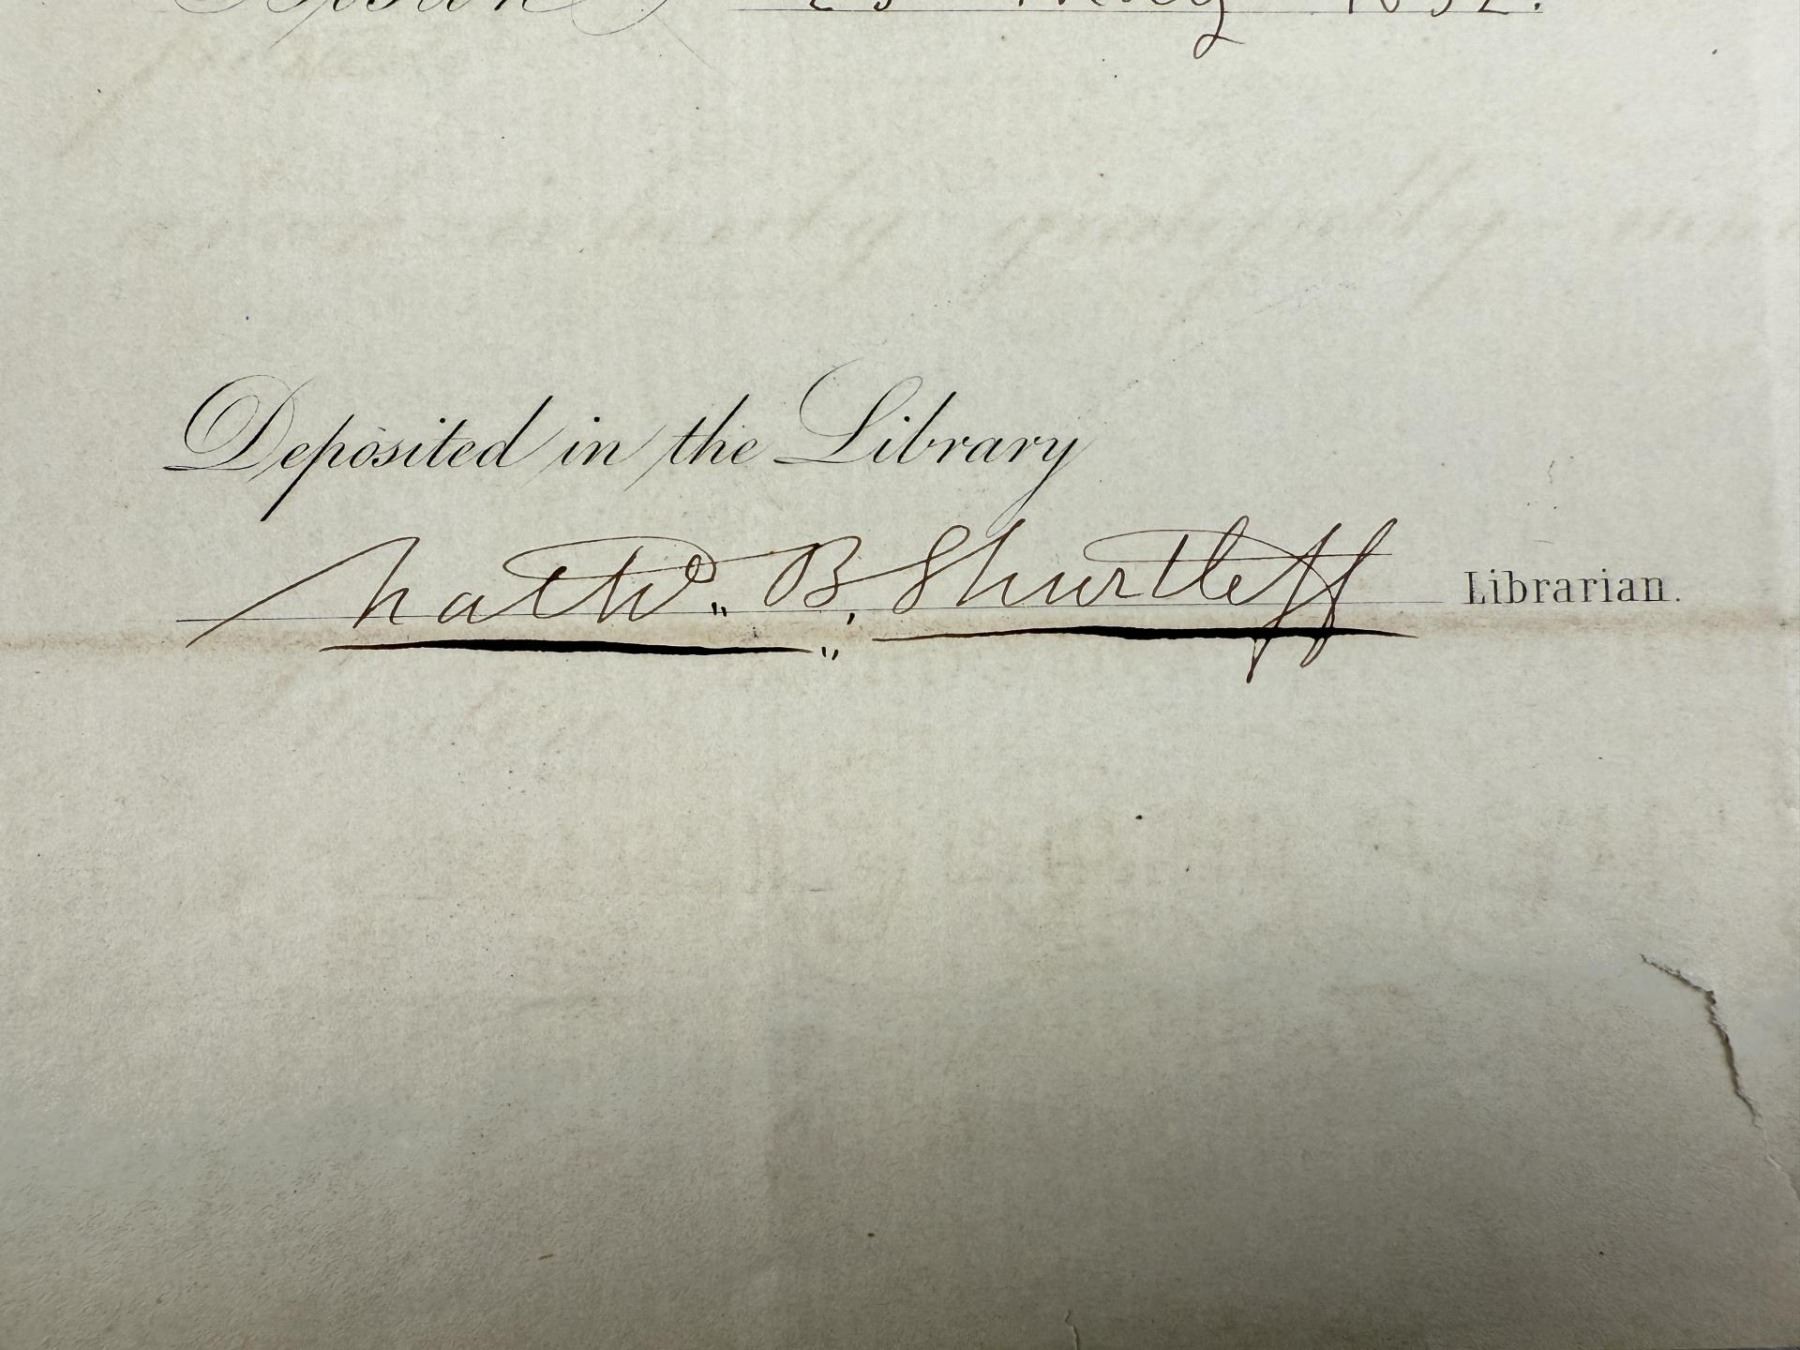 Boston, 25 May 1852.
Deposited in the Library
Nathl. B. Shurtleff Librarian.